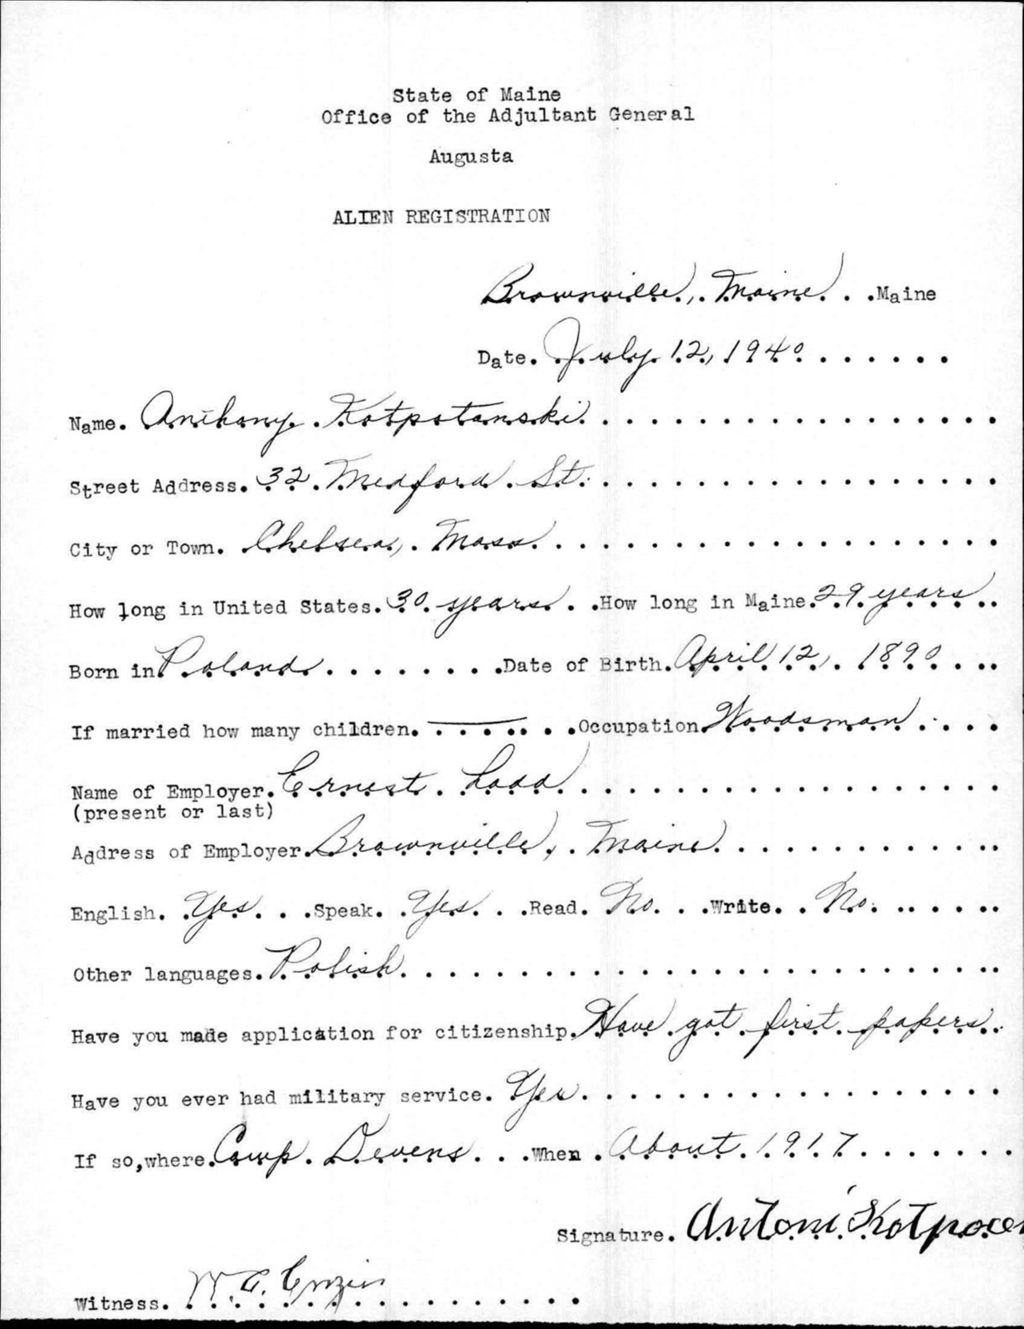 State of Maine
Office of the Adjultant General
Augusta
ALIEN REGISTRATION
Brownville, Maine. . .Maine
Date. July 12, 1940
Name. Anthony Kotpotanski
Street Address. 32 Medford St.
City or Town. Chelsea, Mass
How long in United States. 30 years. . .How long in Maine. 29 years
Born in Poland. . . . . . . .Date of Birth. April 12, 1890
If married how many children. ——— Occupation Woodsman
Name of Employer. Ernest Ladd
(present or last)
Address of Employer. Brownville, Maine
English. Yes. . .Speak. Yes. . .Read. No. . .Write. . No.
Other languages. Polish
Have you made application for citizenship. Have got first papers
Have you ever had military service. Yes
If so,where. Camp Devens. . .When . About 1917
Signature. Antoni
Witness. W. C.